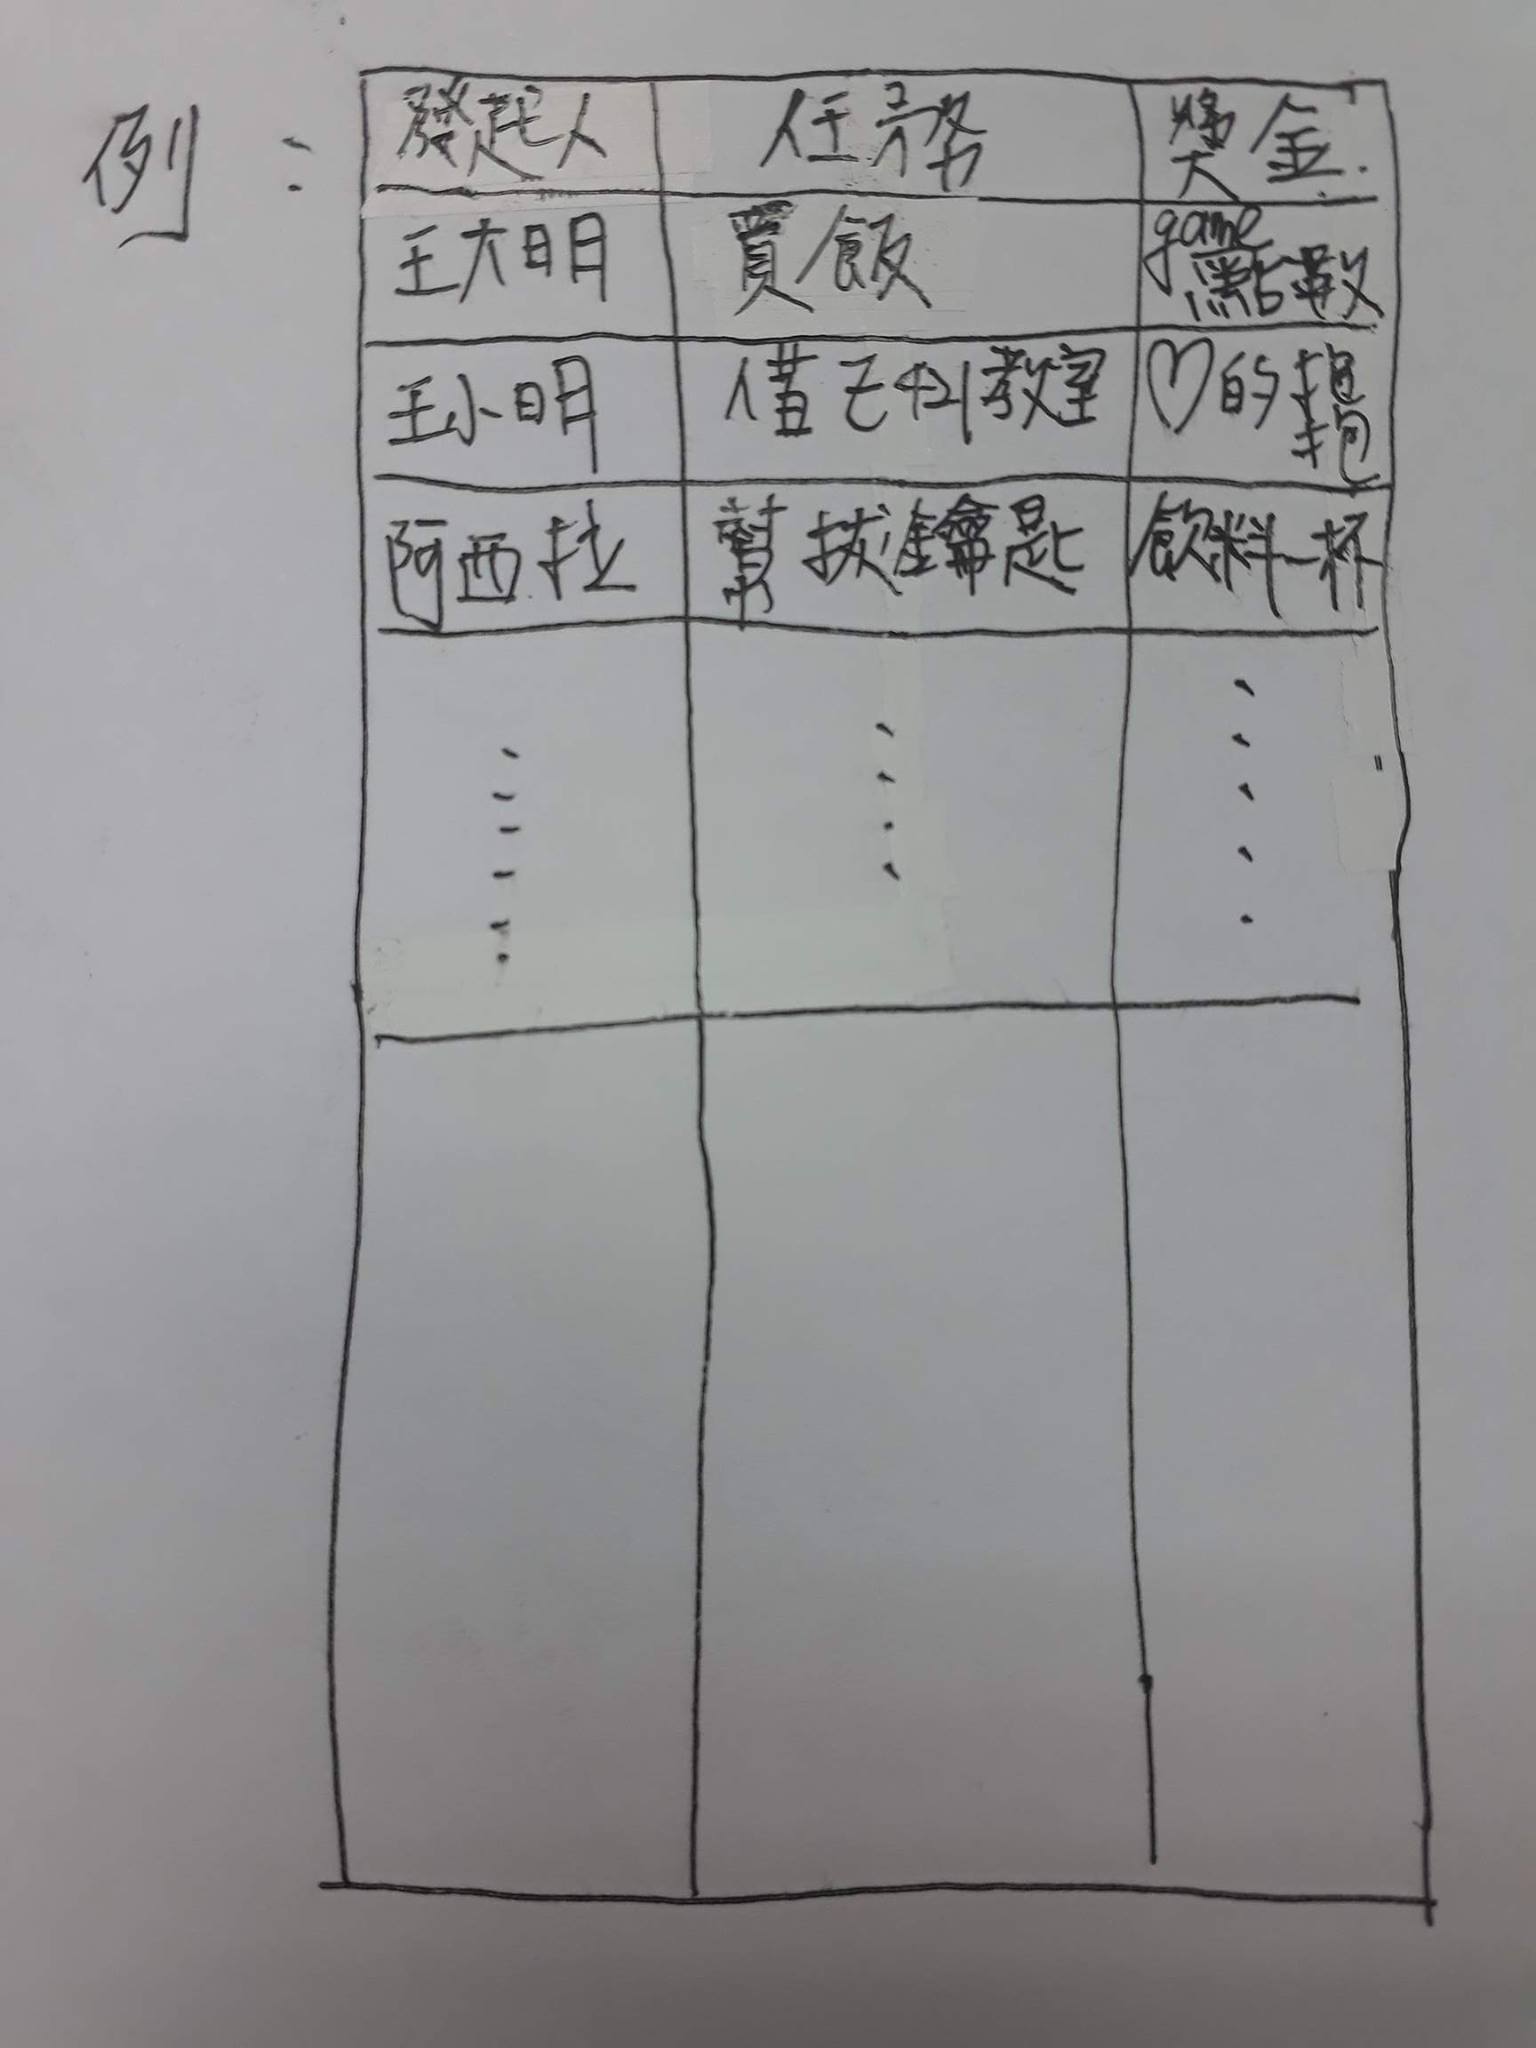 例：
發起人 任務 獎金
王大明 買飯 game點數
王小明 借 教室 ♡的抱抱
阿西拉 幫拔鑰匙 飲料一杯